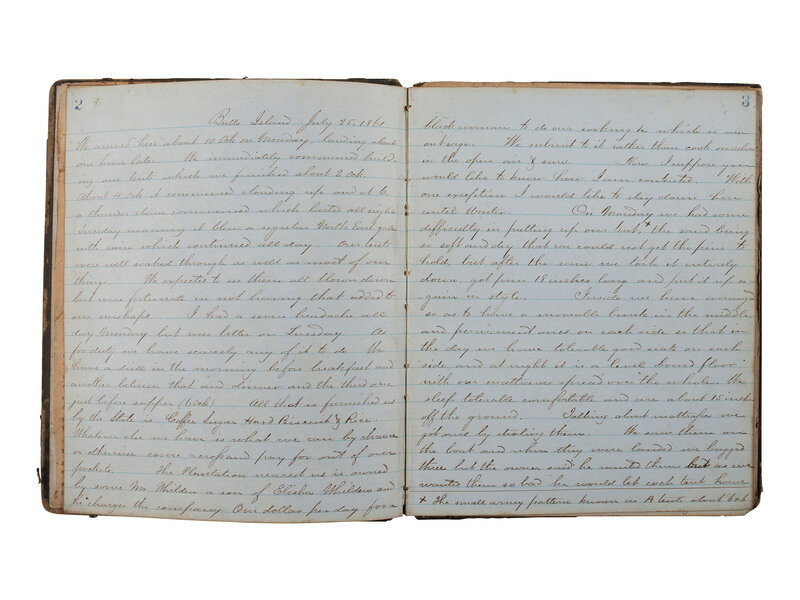 2
Bulls Island July 25. 1861
We arrived here about 10 Ock on Monday, landing about
one hour later. We immediately commenced build
ing our tents which we finished about 2 Ock.
About 4 Ock it commenced clouding up and at 6
a thunder storm commenced which lasted all night
Tuesday morning it blew a regular North East gale
with rain which continued all day. Our tents
were well soaked through as well as most of our
things. We expected to see them all blown down
but were fortunate in not having that added to
our mishaps I had a severe headache all
day Monday but was better on Tuesday As
for duty we have scarcely any of it to do We
have a drill in the morning before breakfast and
another between that and dinner and the third one
just before supper, (6 Ock) All that is furnished us
by the State is Coffee Sugar Hard Biscuit & Rice.
Whatever else we have is what we can by chance
or otherwise come across and pay for out of our
pockets. The Plantation nearest us is owned
by some Mr Whilden a son of Elisha Whilden and
he charges the company One dollar per day for a
3
black woman to do our cooking &c which is an
outrage. We submit to it rather than cook ourselves
in the open air & sun. Now I suppose you
would like to know how I am contented. With
one exception I would like to stay down here
until Winter. On Monday we had some
difficulty in putting up our tent,+ the sand being
so soft and dry that we could not get the pins to
hold, but after the rain we took it entirely
down, got pins 18 inches long and put it up a
gain in style. Inside we have arranged
so as to have a movable bunk in the middle
and permanent ones on each side so that in
the day we have tolerable good seats on each
side and at night it is a level board floor
with our mattrasses spread over the whole We
sleep tolerable comfortable and are about 15 inches
off the ground. Talking about mattrasses we
got ours by stealing them. We saw them on
the boat and when they were landed we bagged
three but the owner said he wanted them but as we
wanted them so bad he would let each tent have
+ The small army pattern known as A tents about 6x6